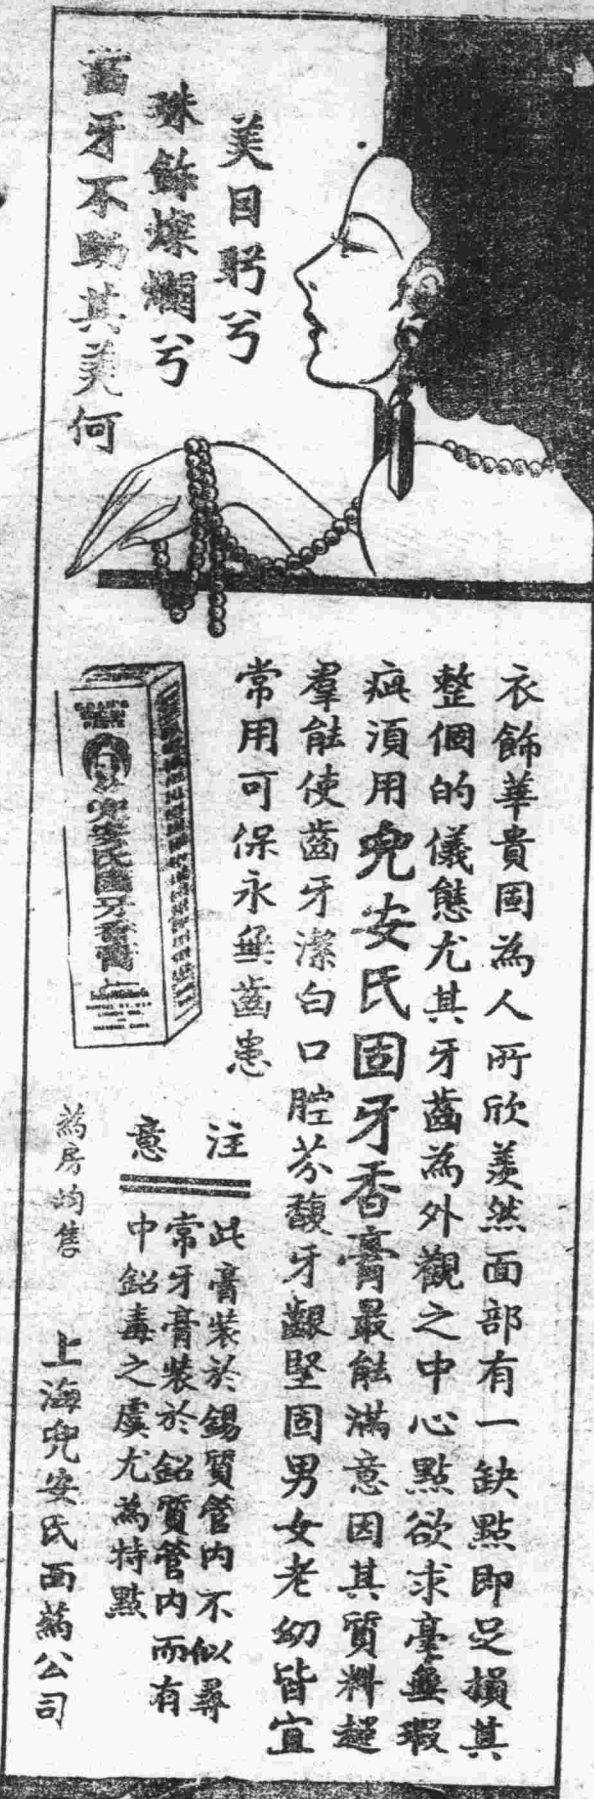 美目盻兮
珠飾燦爛兮
齒牙不助其美何
衣飾華貴固為人所欣羨然面部有一缺點即足損其
整個的儀態尤其牙齒為外觀之中心點欲求毫無瑕
疵須用兜安氏固牙香膏最能滿意因其質料超
羣能使齒牙潔白口腔芬馥牙齦堅固男女老幼皆宜
常用可保永無齒患
兜安氏固牙香膏
注意
此膏裝於錫質管内不似尋
常牙膏裝於鉛質管内而有
中鉛毒之虞尤為特點
藥房均售
上海兜安氏西藥公司